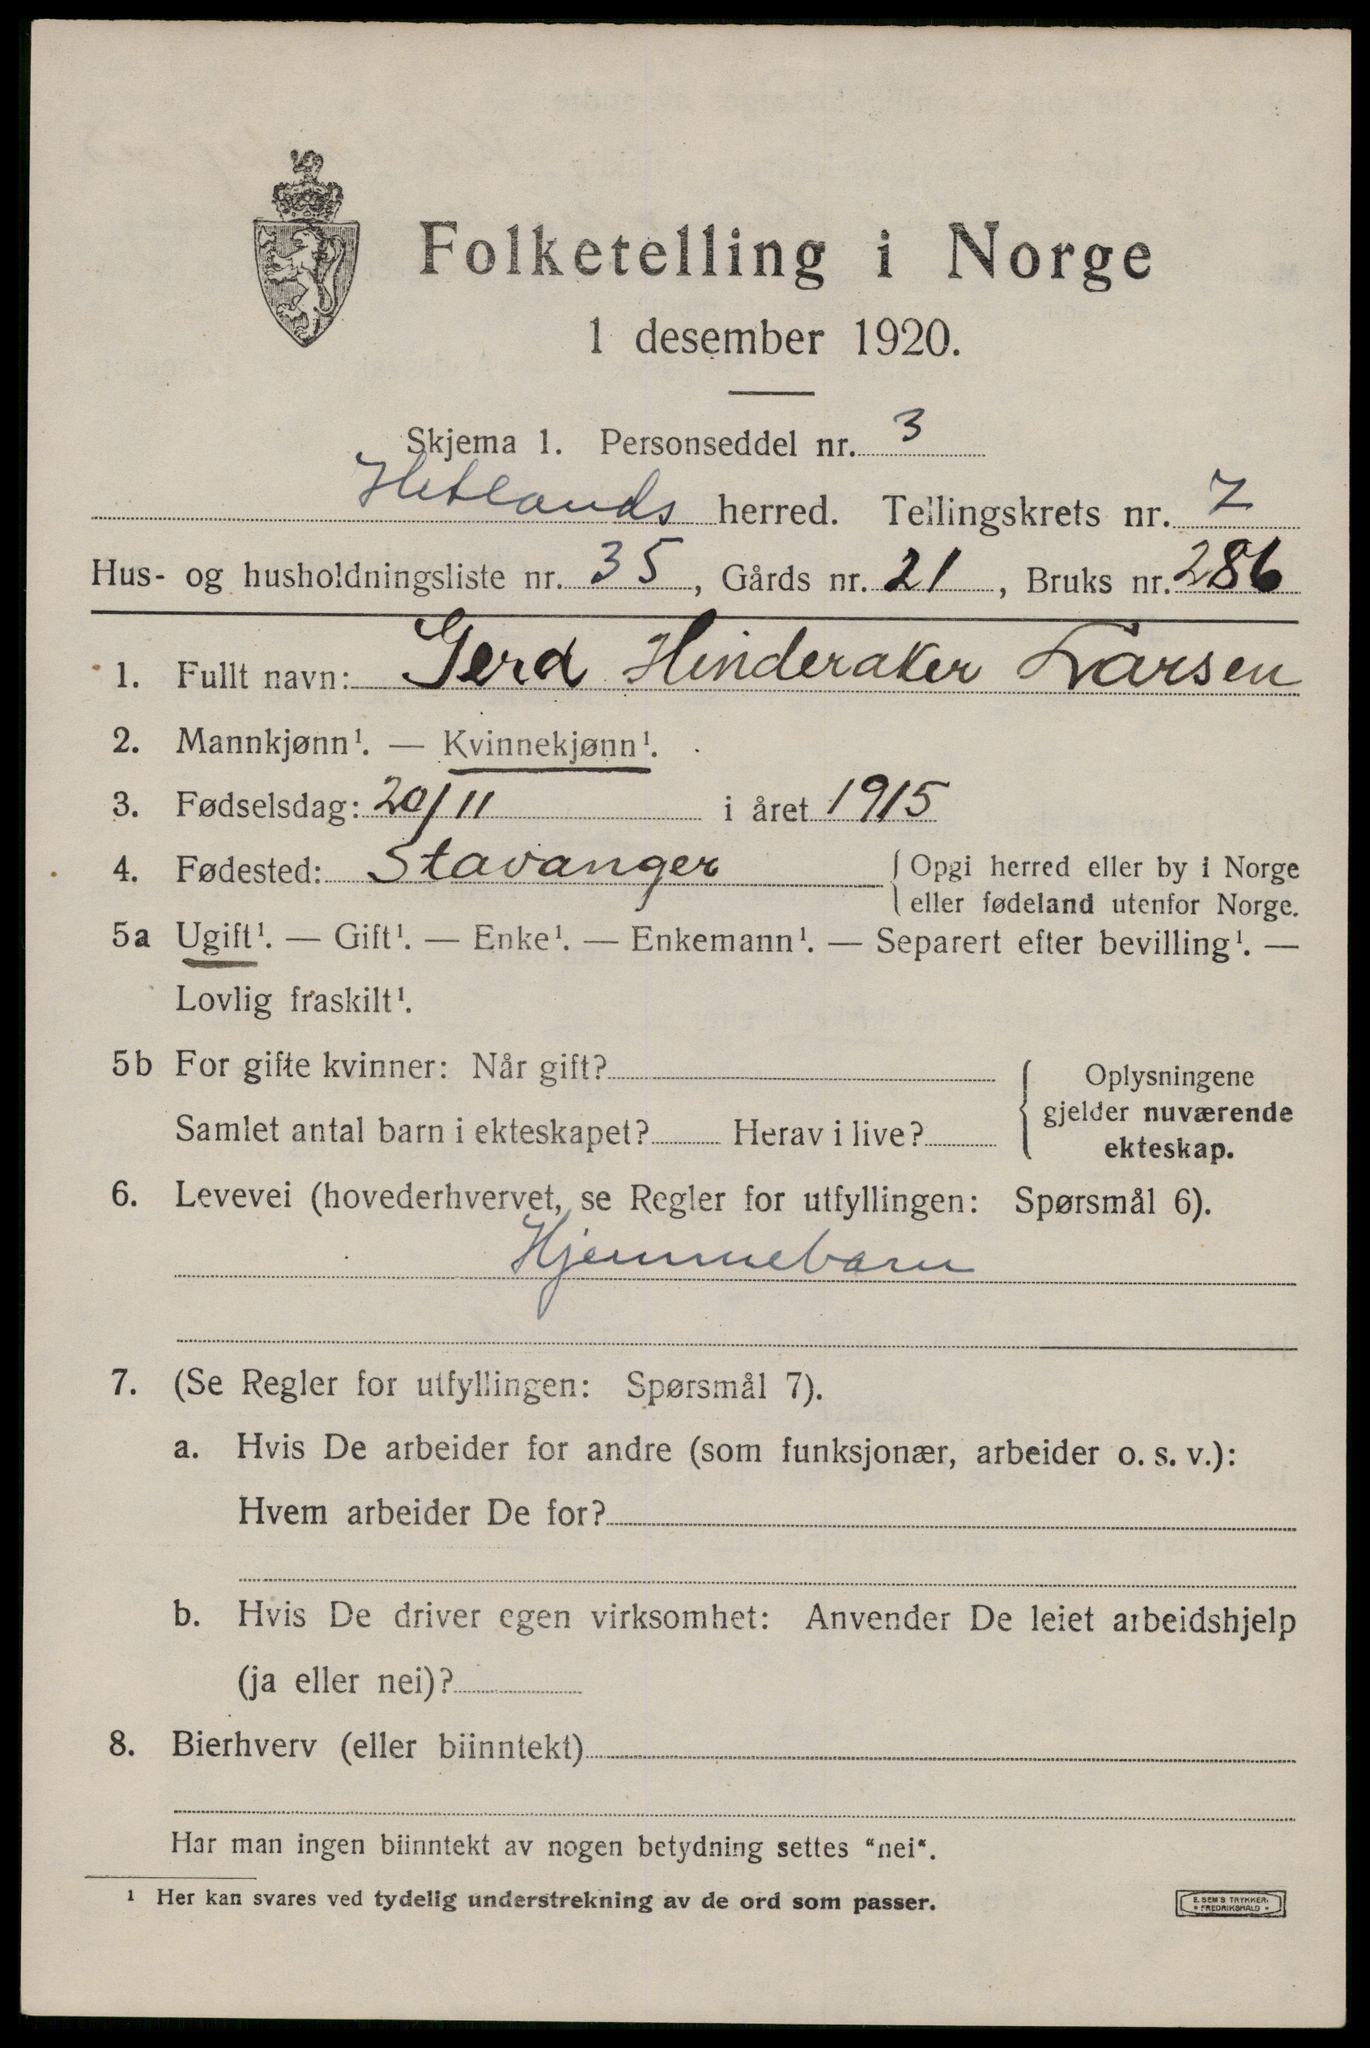 Folketelling i Norge
1 desember 1920.
Skjema 1. Personseddel nr. 3
Hetlands herred. Tellingskrets nr. 7
Hus- og husholdningsliste nr. 35, Gårds nr. 21, Bruks nr. 286
1. Fullt navn: Gerd Hinderaker Larsen
2. Mannkjønn¹. — Kvinnekjønn¹.
3. Fødselsdag: 20/11 i året 1915
4. Fødested: Stavanger { Opgi herred eller by i Norge
eller fødeland utenfor Norge.
5a Ugift¹. — Gift¹. — Enke¹. — Enkemann¹. — Separert efter bevilling¹. —
Lovlig fraskilt¹.
5b For gifte kvinner: Når gift? Oplysningene
gjelder nuværende
Samlet antal barn i ekteskapet? Herav i live?
ekteskap.
6. Levevei (hovederhvervet, se Regler for utfyllingen: Spørsmål 6).
Hjemmebarn
7. (Se Regler for utfyllingen: Spørsmål 7).
a. Hvis De arbeider for andre (som funksjonær, arbeider o. s. v.):
Hvem arbeider De for?
b. Hvis De driver egen virksomhet: Anvender De leiet arbeidshjelp
(ja eller nei)?
8. Bierhverv (eller biinntekt)
Har man ingen biinntekt av nogen betydning settes "nei".
¹ Her kan svares ved tydelig understrekning av de ord som passer.
E. SEM'S TRYKKERI
* FREDRIKSHALD *